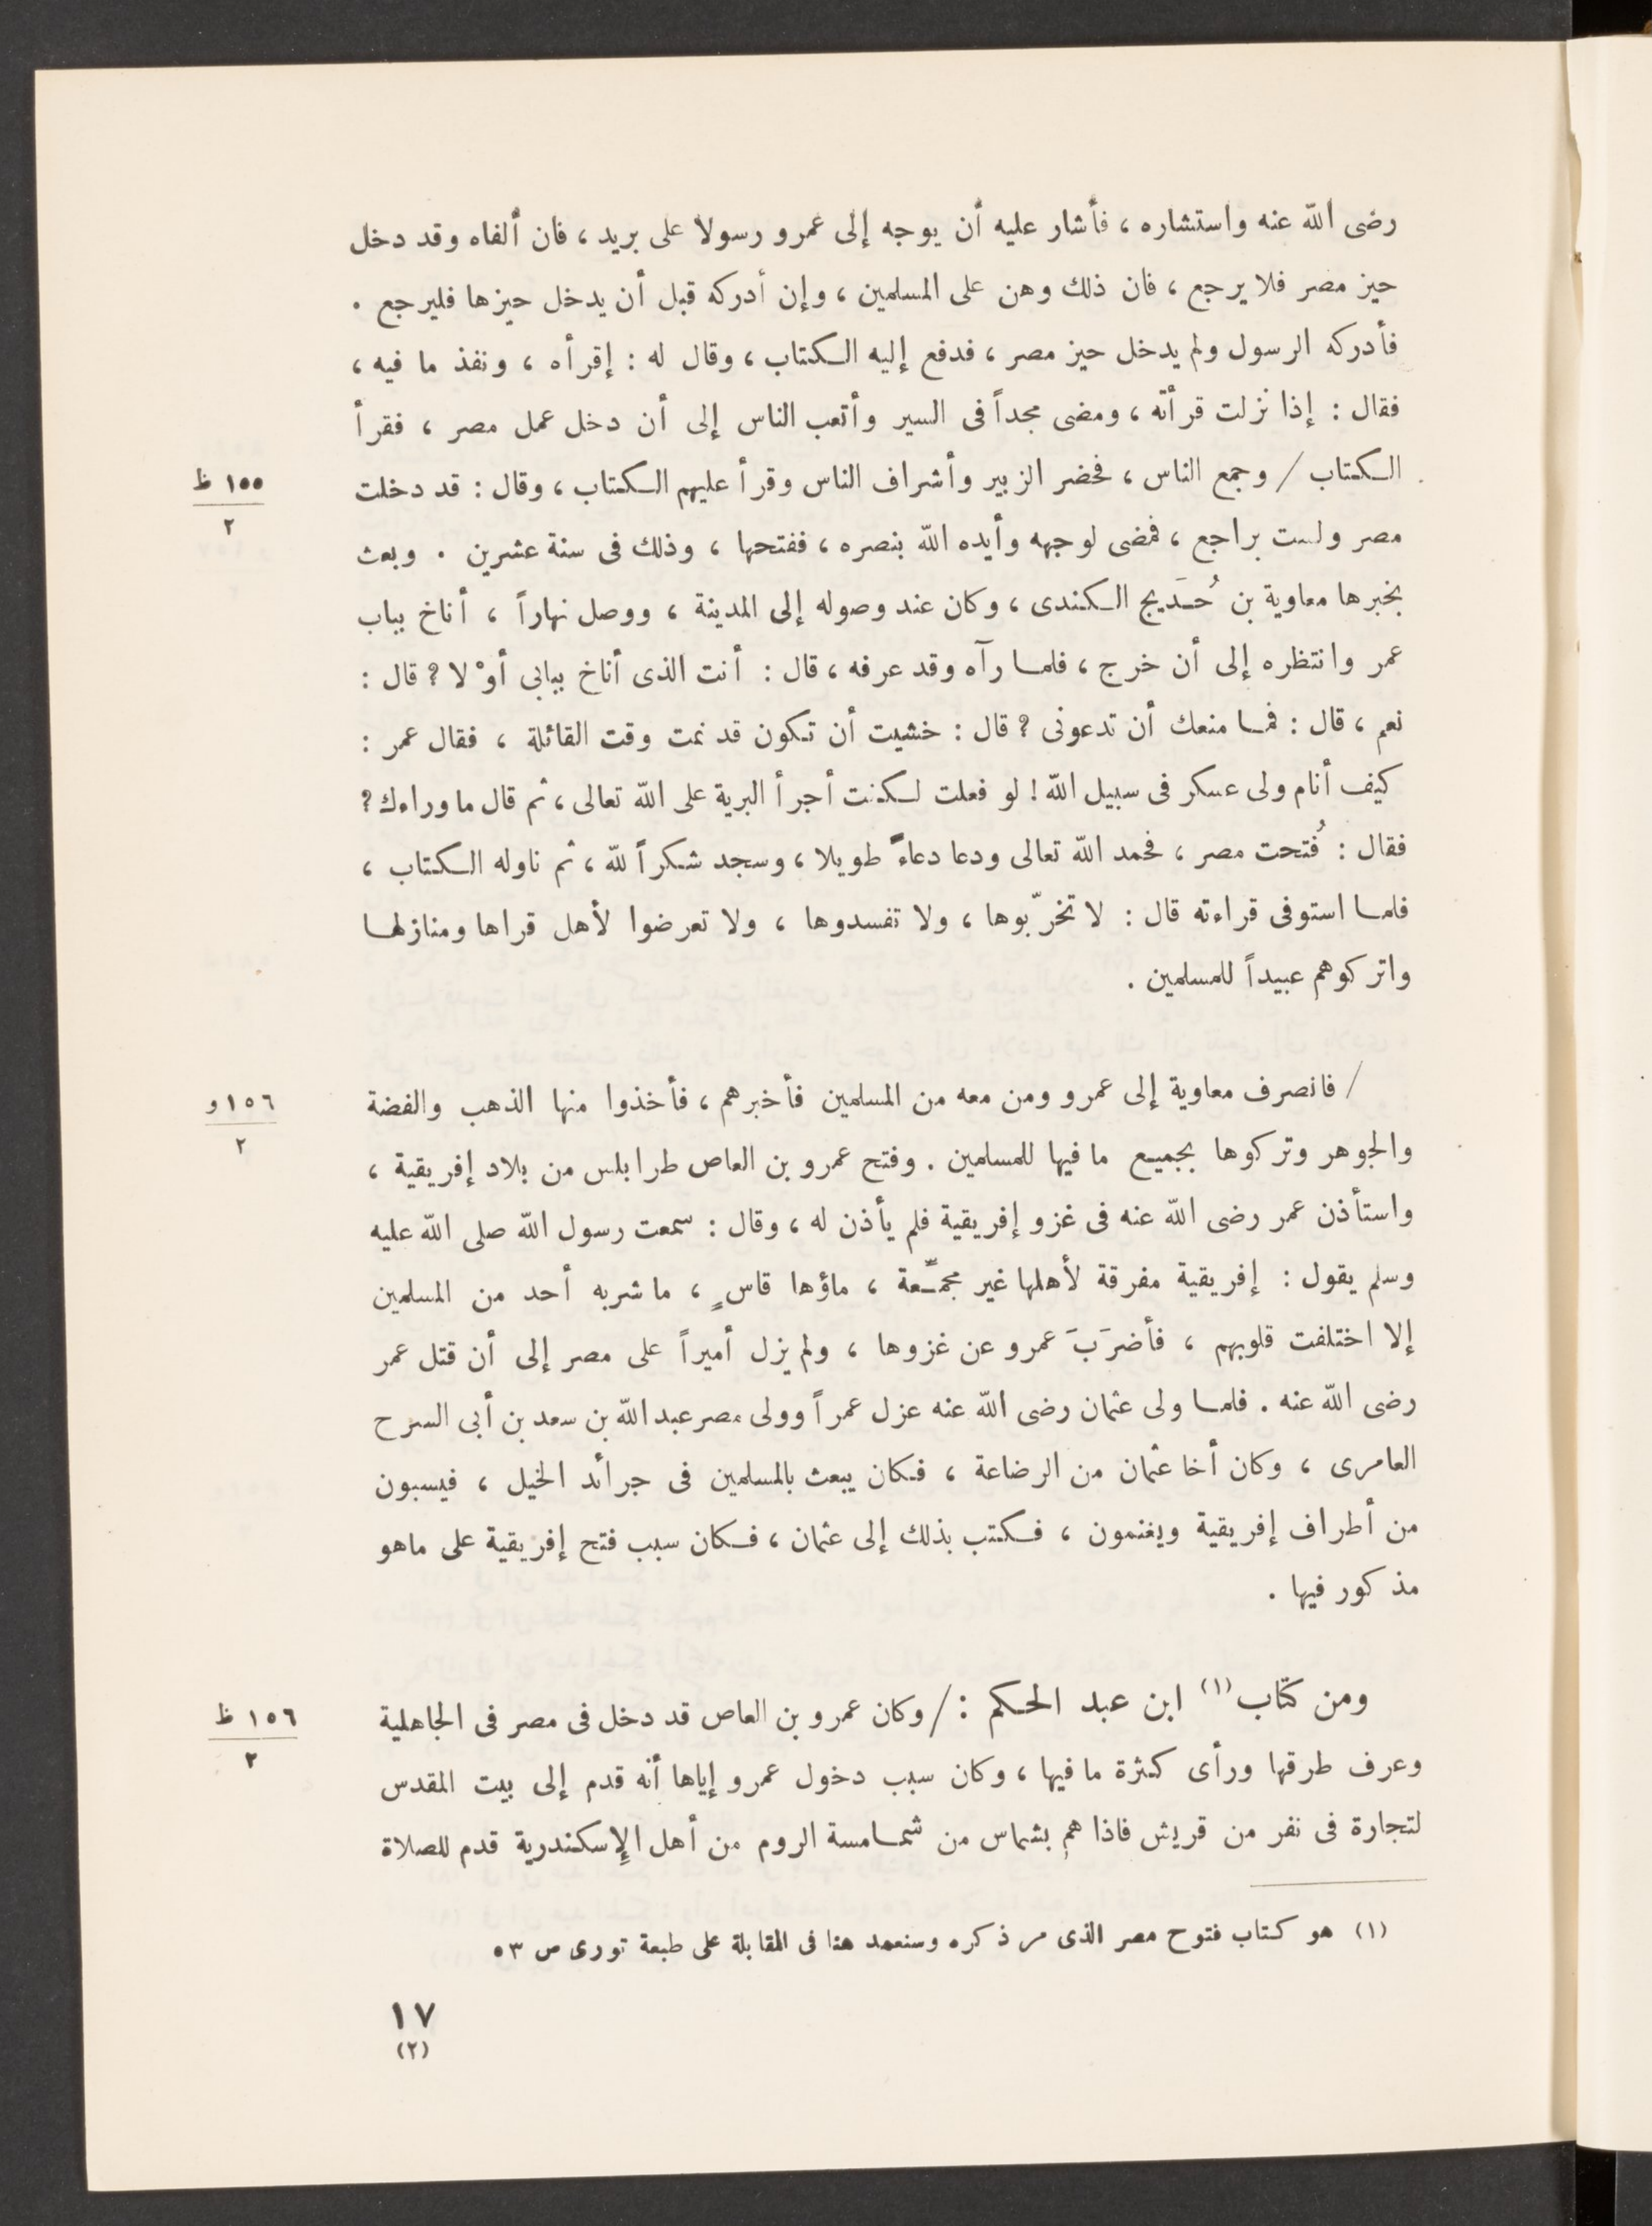 رضى الله عنه واستشاره ، فأشار عليه أن يوجه إلى عمرو رسولا على بريد ، فان ألفاه وقد دخل
حيز مصر فلا يرجع ، فان ذلك وهن على المسلمين ، وإن أدركه قبل أن يدخل حيزها فليرجع .
فأدركه الرسول ولم يدخل حيز مصر ، فدفع إليه الكتاب ، وقال له : إقرأه ، ونفذ ما فيه ،
فقال : إذا نزلت قرأته ، ومضى مجداً فى السير وأتعب الناس إلى أن دخل عمل مصر ، فقرأ
الكتاب / وجمع الناس ، فحضر الزبير وأشراف الناس وقرأ عليهم الكتاب ، وقال : قد دخلت
١٥٥ ظ
٢
مصر ولست براجع ، فمضى لوجهه وأيده الله بنصره ، ففتحها ، وذلك فى سنة عشرين . وبعث
بخبرها معاوية بن حُدَيج الكندى ، وكان عند وصوله إلى المدينة ، ووصل نهاراً ، أناخ بباب
عمر وانتظره إلى أن خرج ، فلما رآه وقد عرفه ، قال : أنت الذى أناخ ببابى أوْ لا ? قال :
نعم ، قال : فما منعك أن تدعونى ? قال : خشيت أن تكون قد نمت وقت القائلة ، فقال عمر :
كيف أنام ولى عسكر فى سبيل الله ! لو فعلت لكنت أجرأ البرية على الله تعالى ، ثم قال ما وراءك ?
فقال : فُتحت مصر ، فحمد الله تعالى ودعا دعاءً طويلا ، وسجد شكراً لله ، ثم ناوله الكتاب ،
فلما استوفى قراءته قال : لا تخرّبوها ، ولا تفسدوها ، ولا تعرضوا لأهل قراها ومنازلها
واتركوهم عبيداً للمسلمين .
/ فانصرف معاوية إلى عمرو ومن معه من المسلمين فأخبرهم ، فأخذوا منها الذهب والفضة
١٥٦ و
٢
والجوهر وتركوها بجميع ما فيها للمسلمين . وفتح عمرو بن العاص طرابلس من بلاد إفريقية ،
واستأذن عمر رضى الله عنه فى غزو إفريقية فلم يأذن له ، وقال : سمعت رسول الله صلى الله عليه
وسلم يقول : إفريقية مفرقة لأهلها غير مجمّعة ، ماؤها قاسٍ ، ما شربه أحد من المسلمين
إلا اختلفت قلوبهم ، فأضرَبَ عمرو عن غزوها ، ولم يزل أميراً على مصر إلى أن قتل عمر
رضى الله عنه . فلما ولى عثمان رضى الله عنه عزل عمراً وولى مصر عبد الله بن سعد بن أبى السرح
العامرى ، وكان أخا عثمان من الرضاعة ، فكان يبعث بالمسلمين فى جرائد الخيل ، فيسبون
من أطراف إفريقية ويغنمون ، فكتب بذلك إلى عثمان ، فكان سبب فتح إفريقية على ماهو
مذكور فيها .
ومن كتاب (١) ابن عبد الحكم : / وكان عمرو بن العاص قد دخل فى مصر فى الجاهلية
١٥٦ ظ
٢
وعرف طرقها ورأى كثرة ما فيها ، وكان سبب دخول عمرو إياها أنه قدم إلى بيت المقدس
لتجارة فى نفر من قريش فاذا هم بشماس من شمامسة الروم من أهل الإسكندرية قدم للصلاة
(١) هو كتاب فتوح مصر الذى مر ذكره وسنعمد هنا فى المقابلة على طبعة تورى ص ٥٣
١٧
(٢)